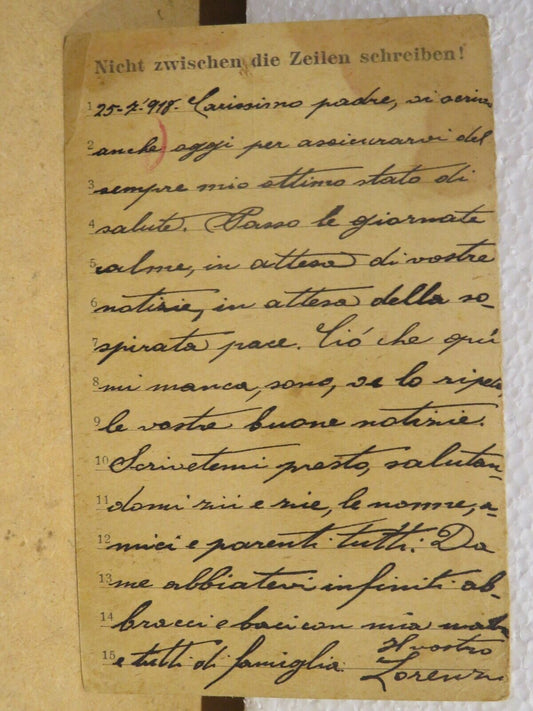 Nicht zwischen die Zeilen schreiben!
1 25-7-918. Carissimo padre, vi scrivo
2 anche oggi per assicurarvi del
3 sempre mio ottimo stato di
4 salute. Passo le giornate
5 calme, in attesa di vostre
6 notizie, in attesa della so-
7 spirata pace. Ció che quí
8 mi manca, sono, ve lo ripeto,
9 le vostre buone notizie.
10 Scrivetemi presto, salutan-
11 domi zii e zie, le nonne, a-
12 mici e parenti tutti. Da
13 me abbiatevi infiniti ab-
14 bracci e baci con mia madre
15 e tutti di famiglia. Il vostro
Lorenzo